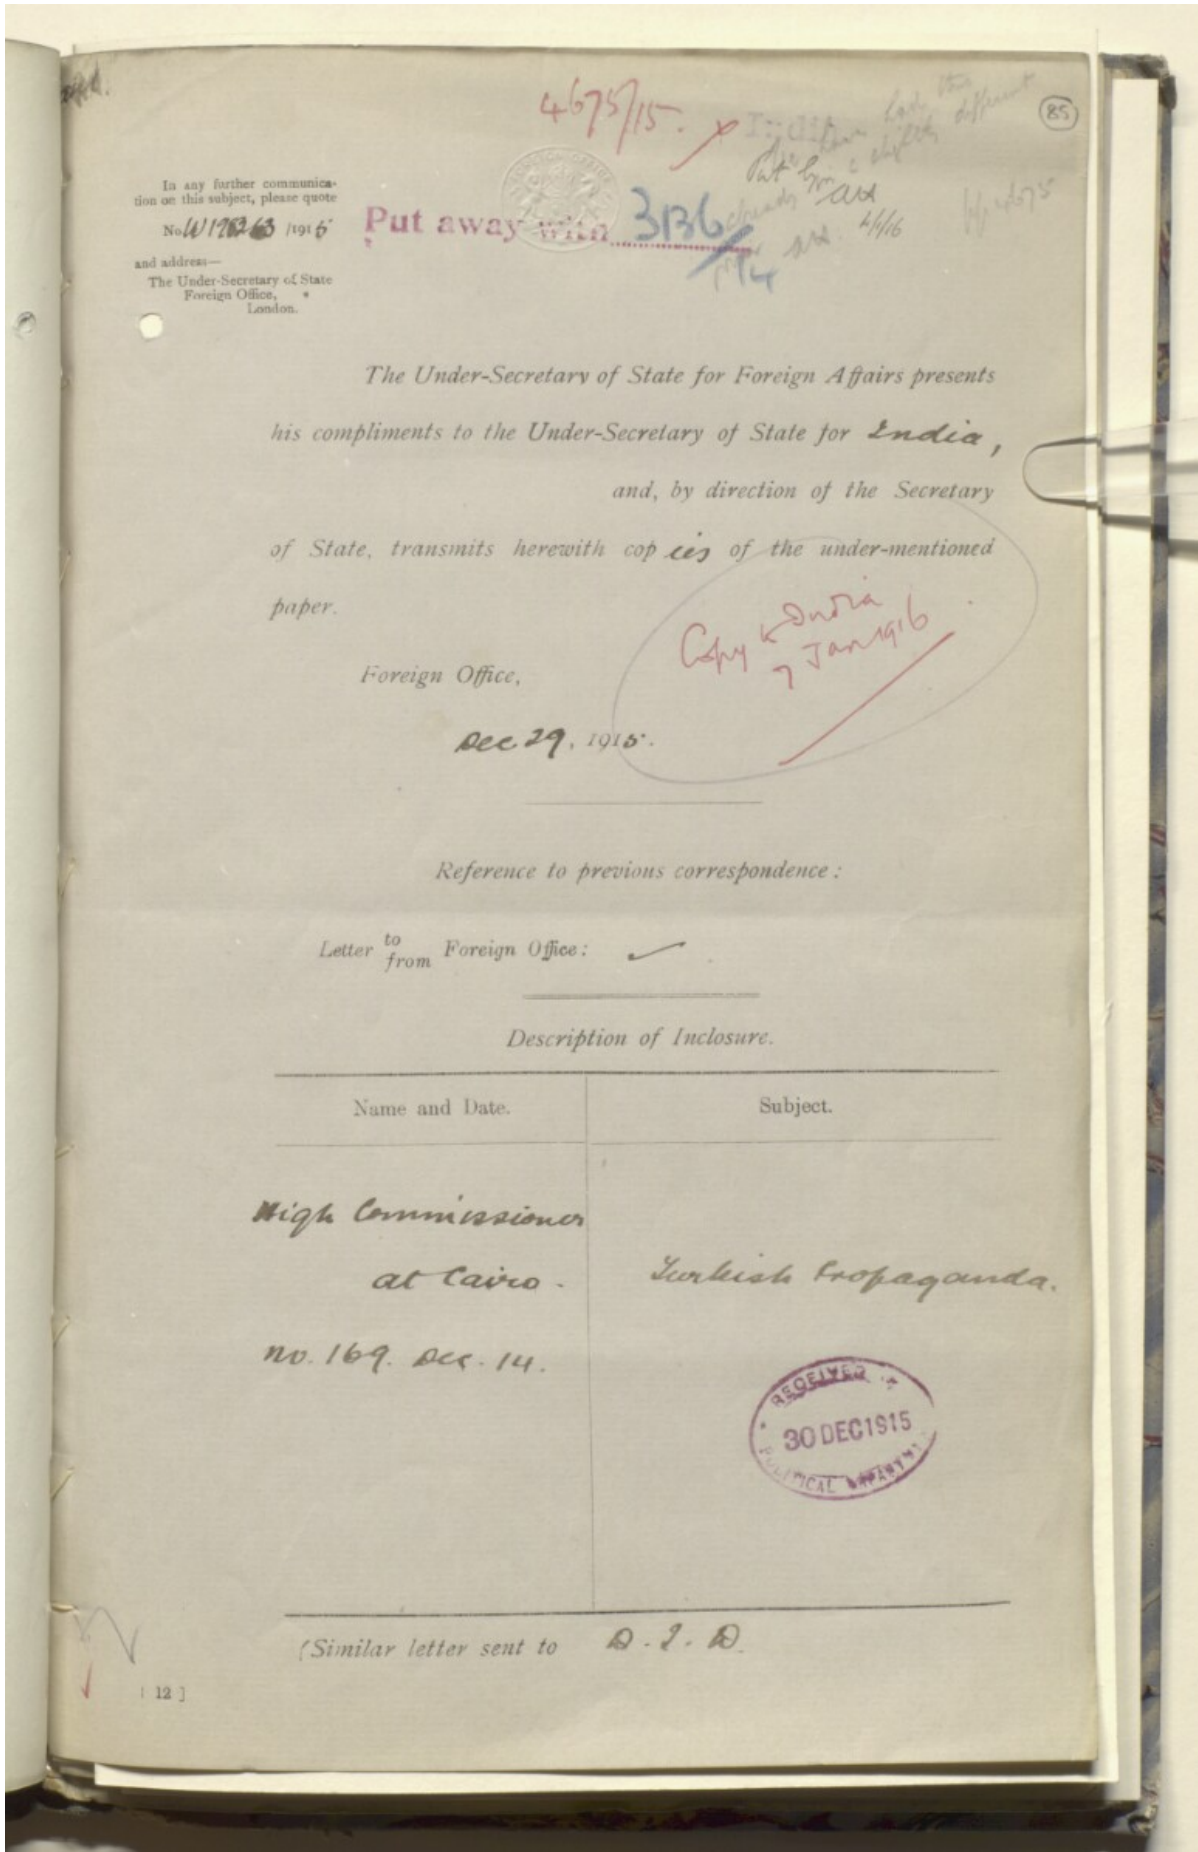 4675/15.
85
India
In any further communica-
tion on this subject, please quote
No. /1915
and address—
The Under-Secretary of State
Foreign Office,
London.
Put away with 3136/14
Put by
4/1/16
The Under-Secretary of State for Foreign Affairs presents
his compliments to the Under-Secretary of State for India,
and, by direction of the Secretary
of State, transmits herewith copies of the under-mentioned
paper.
Copy to India
7 Jan 1916
Foreign Office,
Dec 29, 1915.
Reference to previous correspondence:
Letter to from Foreign Office:
Description of Inclosure.
Name and Date.
Subject.
High Commissioner
at Cairo.
No. 169. Dec. 14.
Turkish Propaganda.
RECEIVED
30 DEC 1915
POLITICAL DEPARTMENT
(Similar letter sent to D.I.D.
[12]